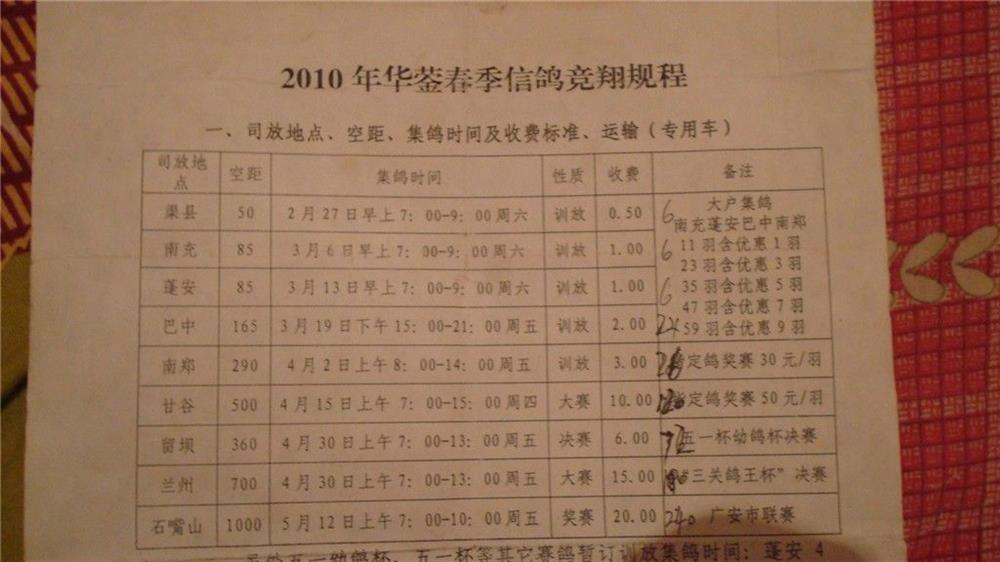 2010年华蓥春季信鸽竞翔规程
一、司放地点、空距、集鸽时间及收费标准、运输（专用车）
司放地点 空距 集鸽时间 性质 收费 备注
渠县 50 2月27日早上7：00-9：00周六 训放 0.50 6 大户集鸽
南充蓬安巴中南郑
南充 85 3月6日早上7：00-9：00周六 训放 1.00 6 11羽含优惠1羽
23羽含优惠3羽
蓬安 85 3月13日早上7：00-9：00周六 训放 1.00 6 35羽含优惠5羽
47羽含优惠7羽
巴中 165 3月19日下午15：00-21：00周五 训放 2.00 24 59羽含优惠9羽
南郑 290 4月2日上午8：00-14：00周五 训放 3.00 定鸽奖赛30元/羽
甘谷 500 4月15日上午 7：00-15：00周四 大赛 10.00 定鸽奖赛50元/羽
留坝 360 4月30日上午7：00-13：00周五 决赛 6.00 五一杯幼鸽杯决赛
兰州 700 4月30日上午7：00-13：00周五 大赛 15.00 “三关鸽王杯”决赛
石嘴山 1000 5月12日上午7：00-10：00周五 奖赛 20.00 240 广安市联赛
另外五一幼鸽杯、五一杯等其它赛鸽暂订训放集鸽时间：蓬安4